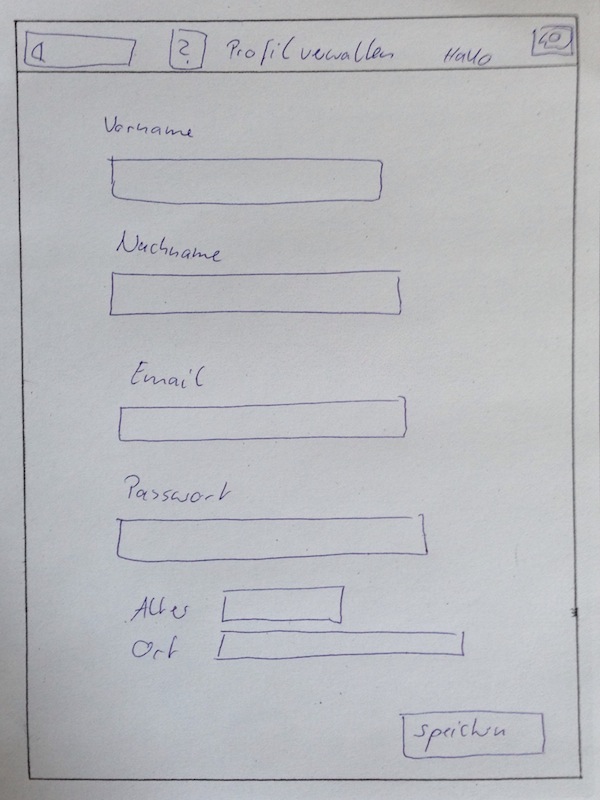 ? Profil verwalten Hallo
Vorname
Nachname
Email
Passwort
Alter
Ort
speichern